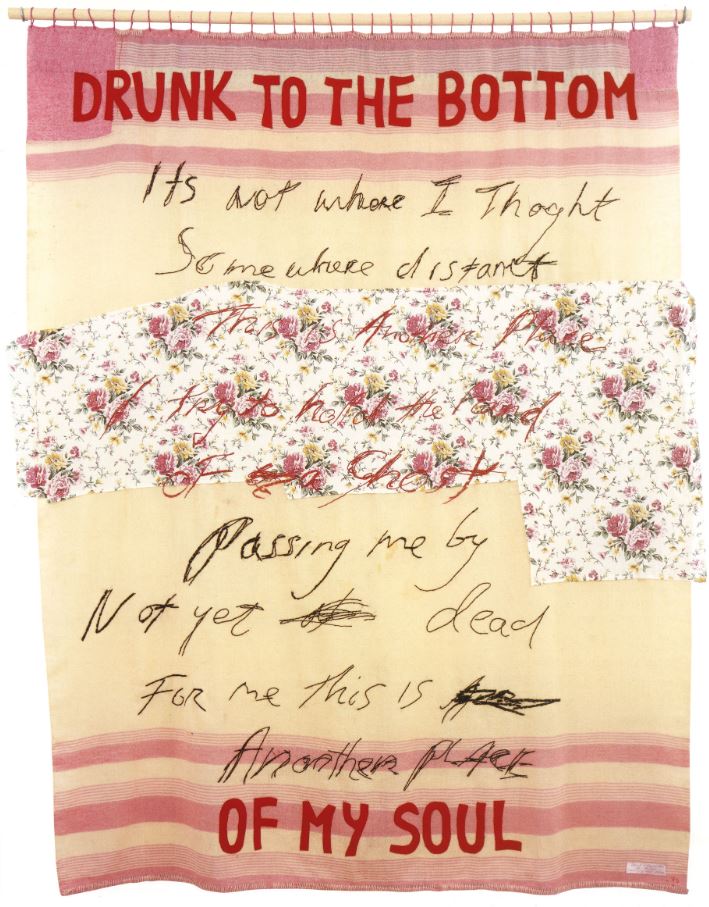 DRUNK TO THE BOTTOM
Its not where I Thoght
Somewhere distant
This is Another Place
I try to hold the hand
of a Ghost
Passing me by
Not yet dead
For me this is
Anoother place
OF MY SOUL